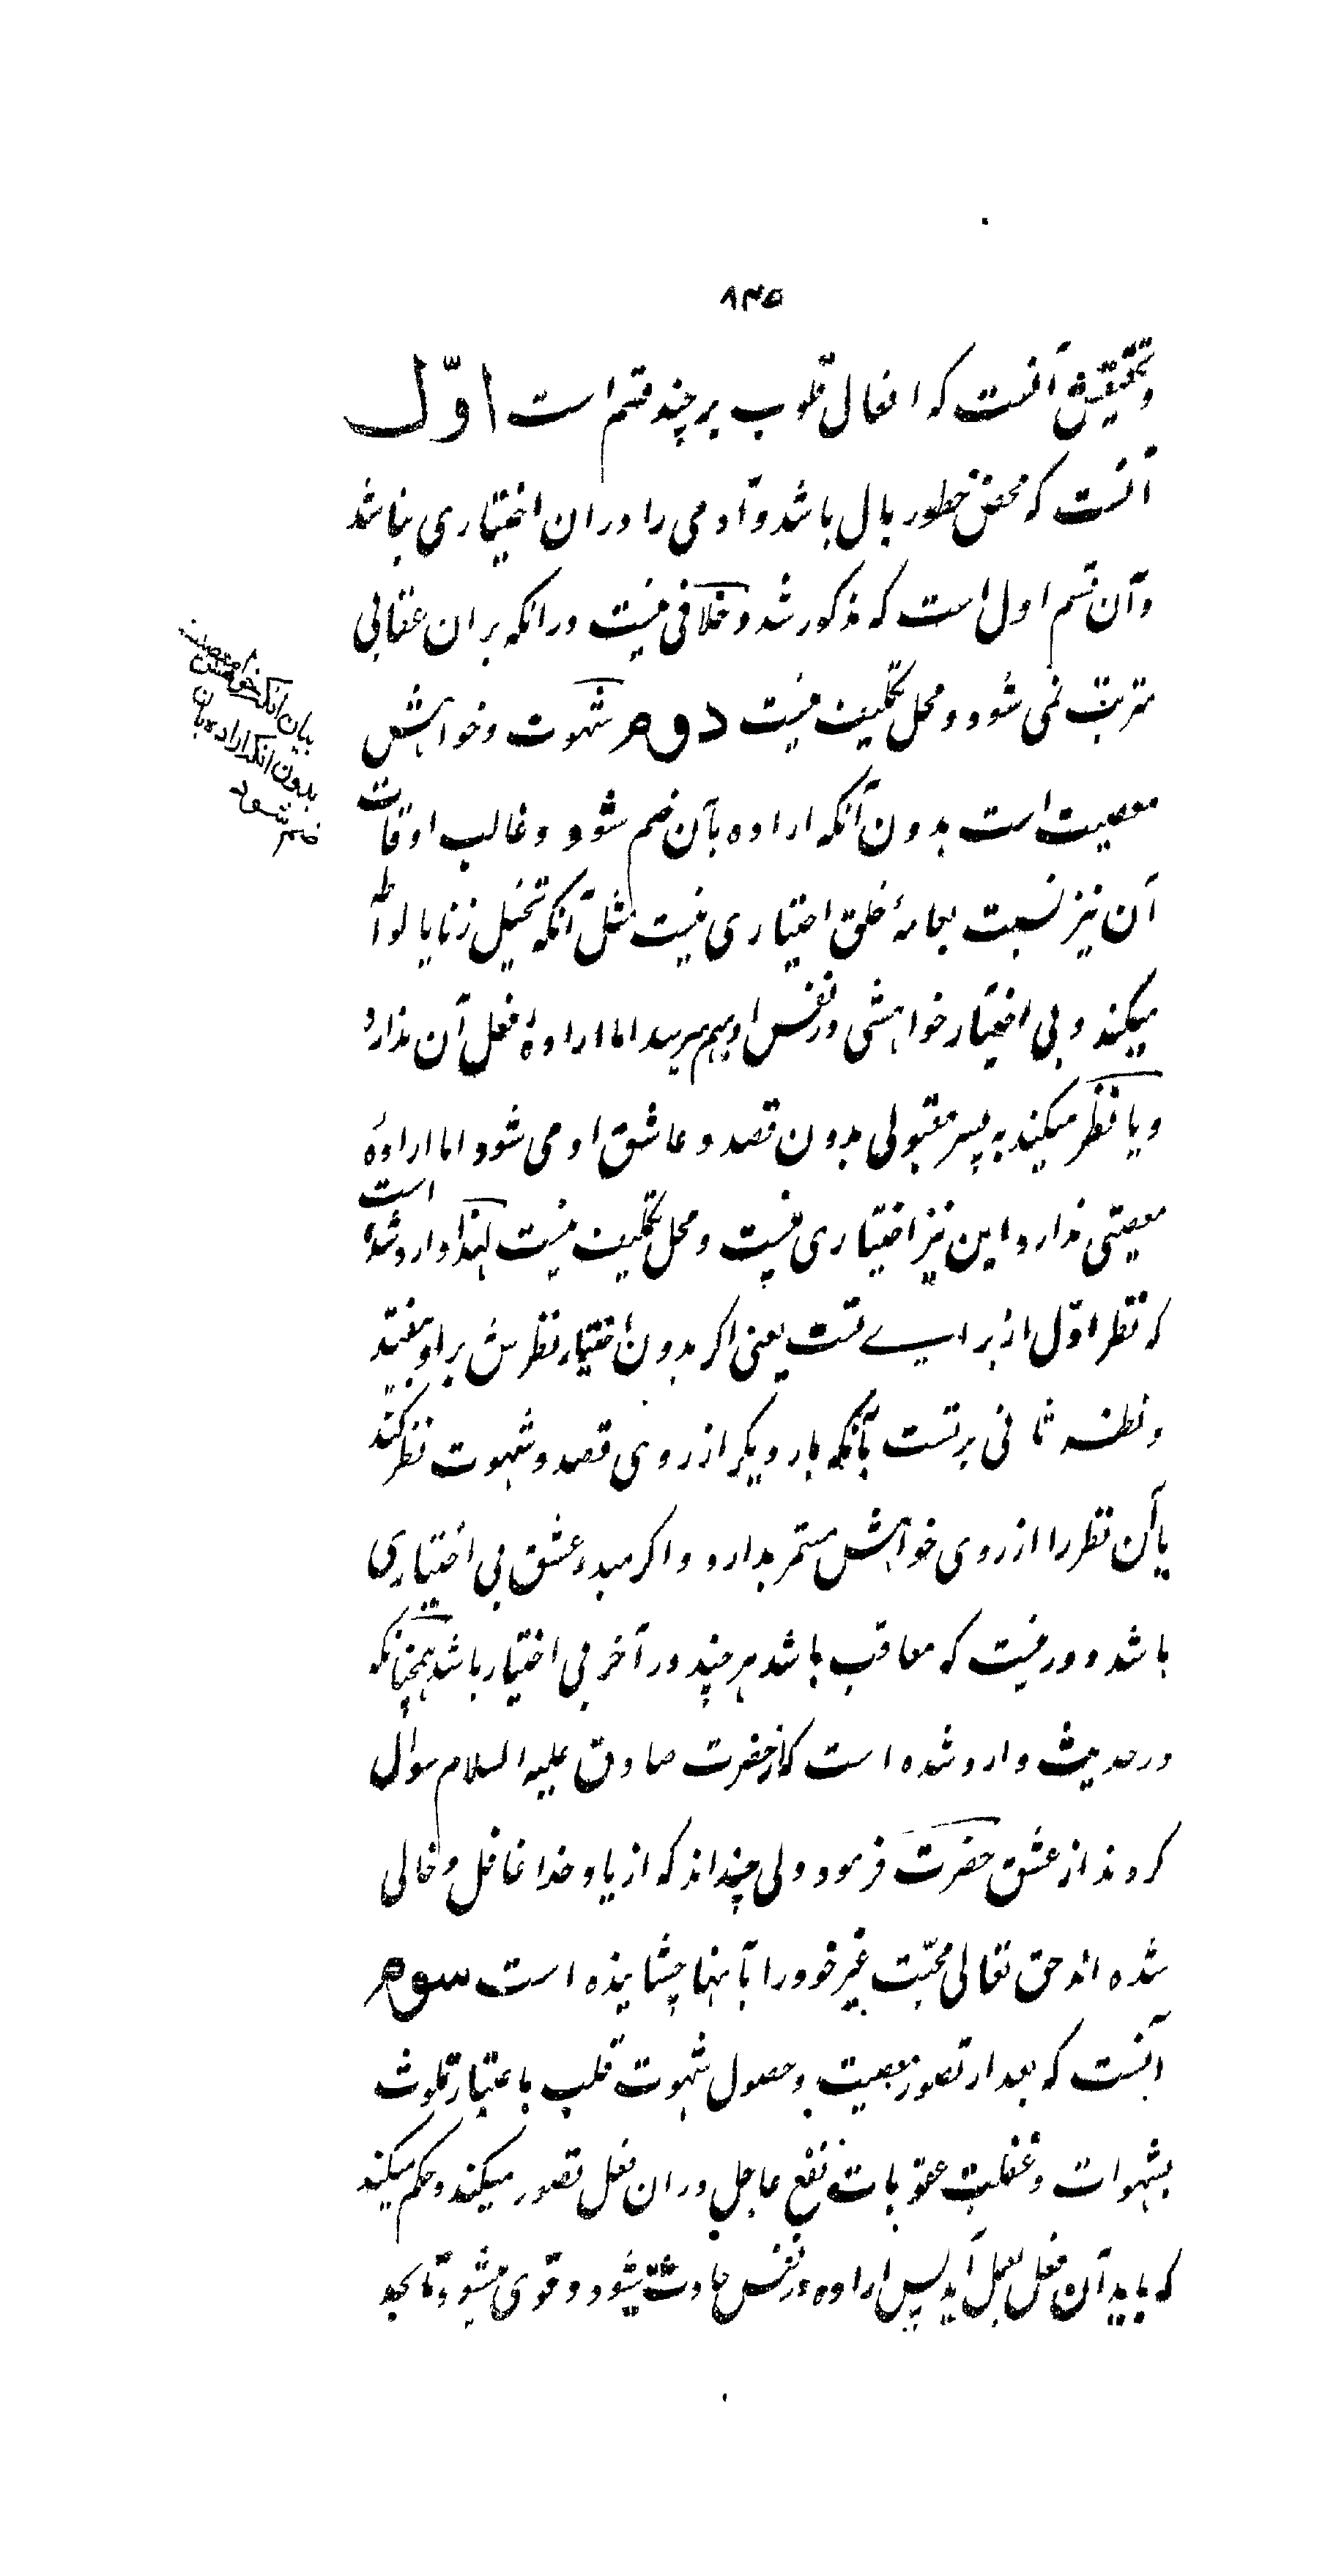 ۸۳۵
وتحقیقش آنست که افعال قلوب بر چند قسم است اوّل
آنست که محض خطور بال باشد و آدمی را در ان اختیاری نباشد
و آن قسم اول است که مذکور شد و خلافی نیست در انکه بر ان عقابی
مترتب نمی شود و محل تکلیف نیست دوم شهوت و خواهش
معصیت است بدون آنکه اراده بآن ضم شود و غالب اوقات
آن نیز نسبت بعامهٔ خلق اختیاری نیست مثل آنکه تخیل زنا یا لواطه
میکند و بی اختیار خواهشی در نفس او بهم میرسد اما ارادهٔ فعل آن ندارد
و یا نظر میکند به پسر مقبولی بدون قصد و عاشق او می شود اما ارادهٔ
معصیتی ندارد و این نیز اختیاری نیست و محل تکلیف نیست لهذا وارد شده است
که نظر اوّل از برای تست یعنی اکر بدون اختیار نظرش بر او بیفتد
و نظر ثانی بر تست بآنکه بار دیکر از روی قصد و شهوت نظر کند
یا آن نظر را از روی خواهش مستمر بدارد و اکر مبدء عشق بی اختیاری
باشد دور نیست که معاقب باشد هر چند در آخر بی اختیار باشد همچنانکه
در حدیث وارد شده است که از حضرت صادق علیه السلام سوال
کردند از عشق حضرت فرمود دلی چنداند که از یاد خدا غافل و خالی
شده اند حق تعالی محبّت غیر خود را بآنها چشانیده است سوم
آنست که بعد از تصور معصیت و حصول شهوت قلب باعتبار تلوث
بشهوات و غفلت عقوبات نفع عاجل در ان فعل تصور میکند و حکم میکند
که باید آن فعل بعمل آید پس اراده در نفس حادث میشود و قوی میشود تا بحد
بیان انکه خواهش معصیت
بدون انکه اراده بان
ضم شود